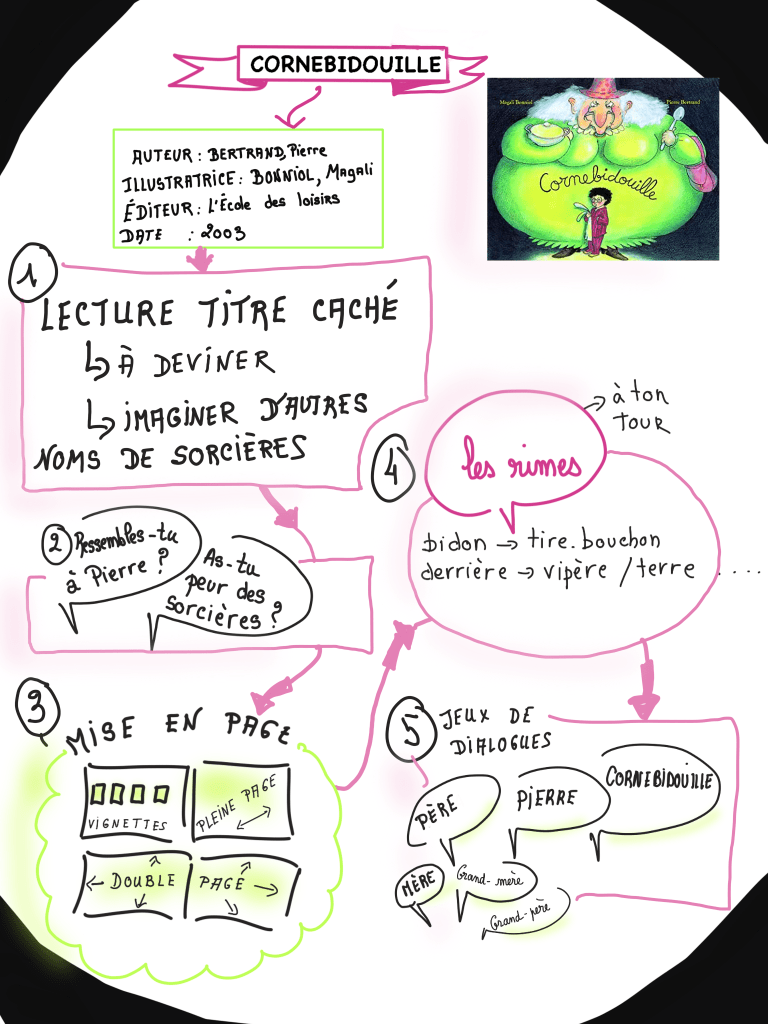 CORNEBIDOUILLE
Magali Bonniol
Pierre Bertrand
Cornebidouille
AUTEUR : BERTRAND, Pierre
ILLUSTRATRICE : BONNIOL, Magali
ÉDITEUR : L'École des loisirs
DATE : 2003
1
LECTURE TITRE CACHÉ
↳ À DEVINER
↳ IMAGINER D'AUTRES
NOMS DE SORCIÈRES
2 Ressembles-tu
à Pierre ?
As-tu
peur des
sorcières ?
3
MISE EN PAGE
VIGNETTES
PLEINE PAGE
DOUBLE PAGE
4
les rimes
→ à ton
TOUR
bidon → tire.bouchon
derrière → vipère / terre ....
5
JEUX DE
DIALOGUES
PÈRE
PIERRE
CORNEBIDOUILLE
MÈRE
Grand-mère
Grand-père